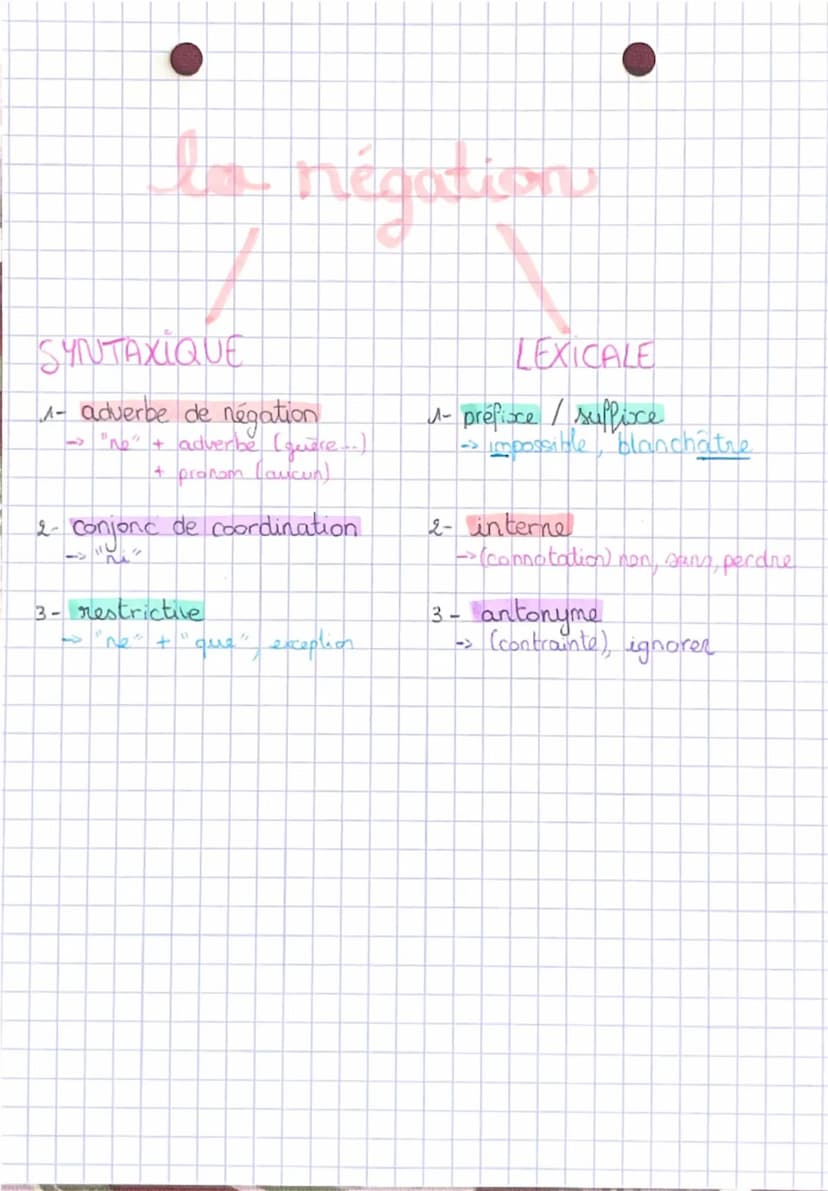 la négation
SYNTAXIQUE
1- adverbe de négation
-> "ne" + adverbe (guère...)
+ pronom (aucun)
2- conjonc de coordination
-> "ni"
3- restrictive
-> "ne" + "que", exception
LEXICALE
1- préfixe / suffixe
-> impossible, blanchâtre
2- interne
-> (connotation) non, sans, perdre
3- antonyme
-> (contrainte), ignorer